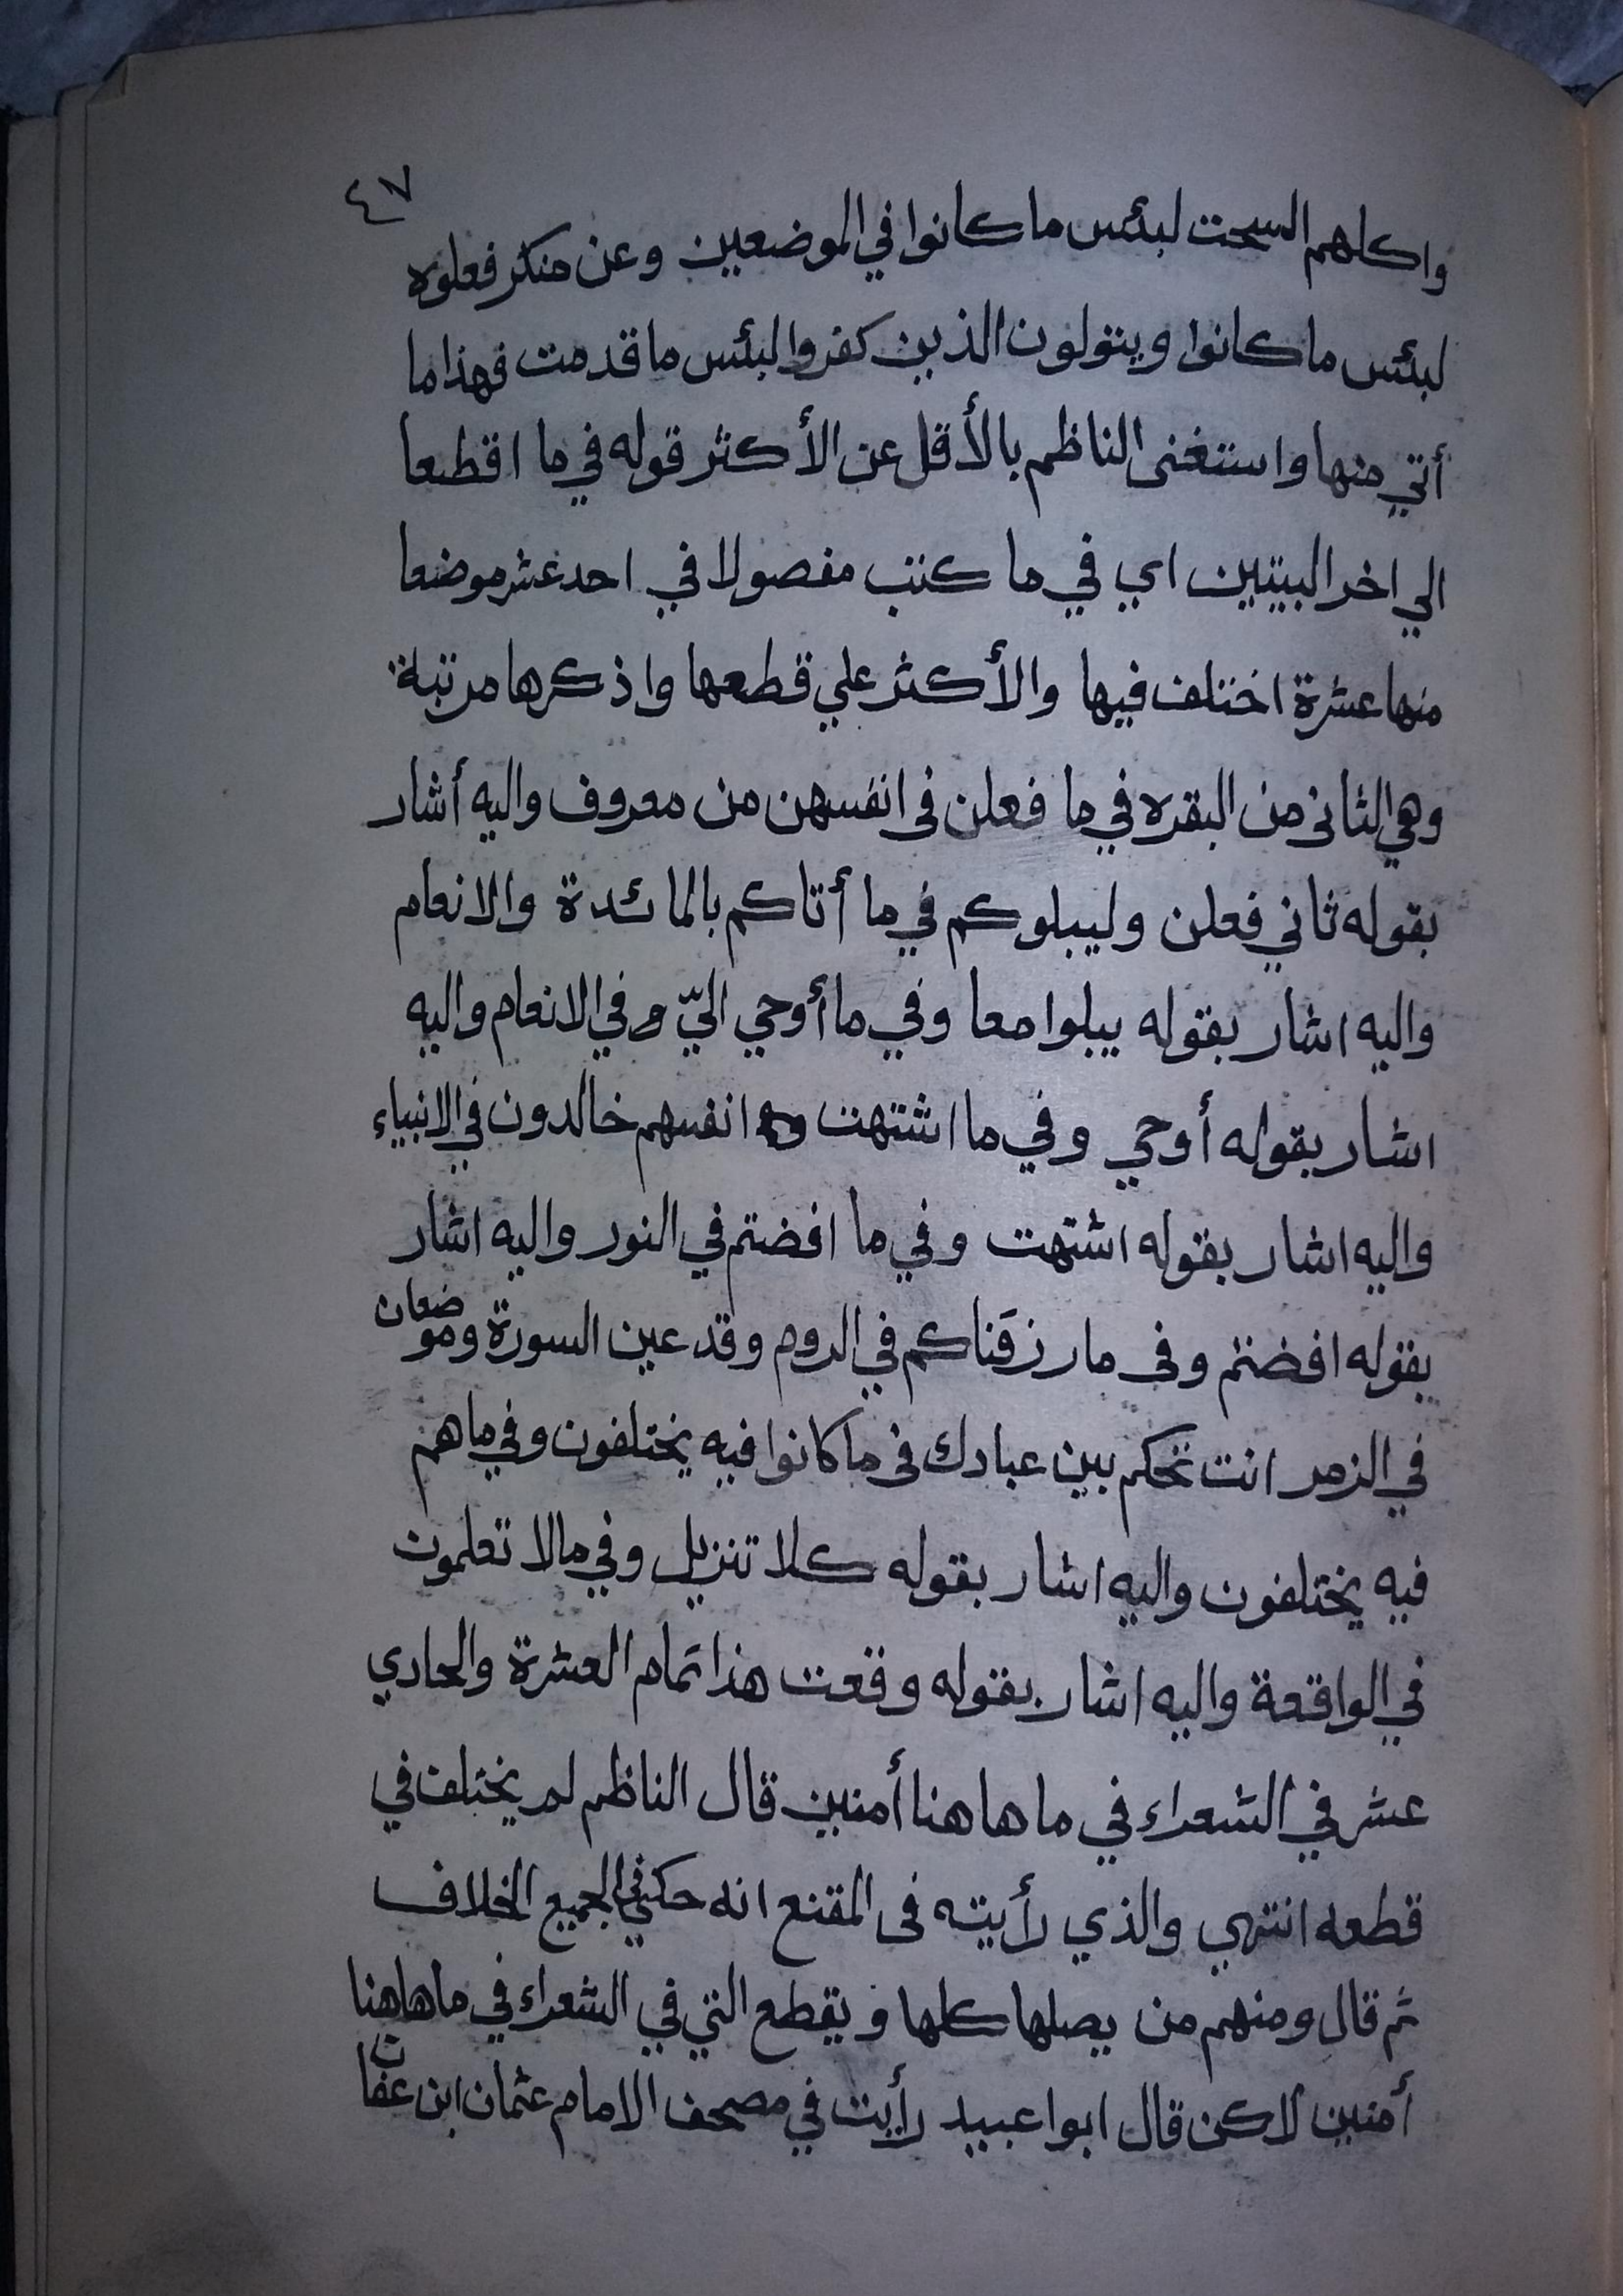 ٤٧
واكلهم السحت لبئس ما كانوا في الموضعين وعن منكر فعلوه
لبئس ما كانوا ويتولون الذين كفروا لبئس ما قدمت فهذا ما
أتي منها واستغنى الناظم بالأقل عن الأكثر قوله في ما اقطعا
الي اخر البيتين اي في ما كتب مفصولا في احد عشر موضعا
منها عشرة اختلف فيها والأكثر علي قطعها واذكرها مرتبة
وهي الثاني من البقره في ما فعلن في انفسهن من معروف واليه أشار
بقوله ثاني فعلن وليبلوكم في ما أتاكم بالمائدة والانعام
واليه اشار بقوله يبلوا معا وفي ما أوحي اليّ في الانعام واليه
اشار بقوله أوحي وفي ما اشتهت انفسهم خالدون في الانبياء
واليه اشار بقوله اشتهت وفي ما افضتم في النور واليه اشار
بقوله افضتم وفى ما رزقناكم في الروم وقد عين السورة وموضعان
في الزمر انت تحكم بين عبادك فى ما كانوا فيه يختلفون وفي ما هم
فيه يختلفون واليه اشار بقوله كلا تنزيل وفي ما لا تعلمون
في الواقعة واليه اشار بقوله وقعت هذا تمام العشرة والحادي
عشر في الشعراء في ما ها هنا أمنين قال الناظم لم يختلف في
قطعه انتهي والذي رأيته فى المقنع انه حكي في الجميع الخلاف
ثم قال ومنهم من يصلها كلها و يقطع التي في الشعراء في ما هاهنا
أمنين لاكن قال ابوا عبيد رأيت في مصحف الامام عثمان ابن عفان